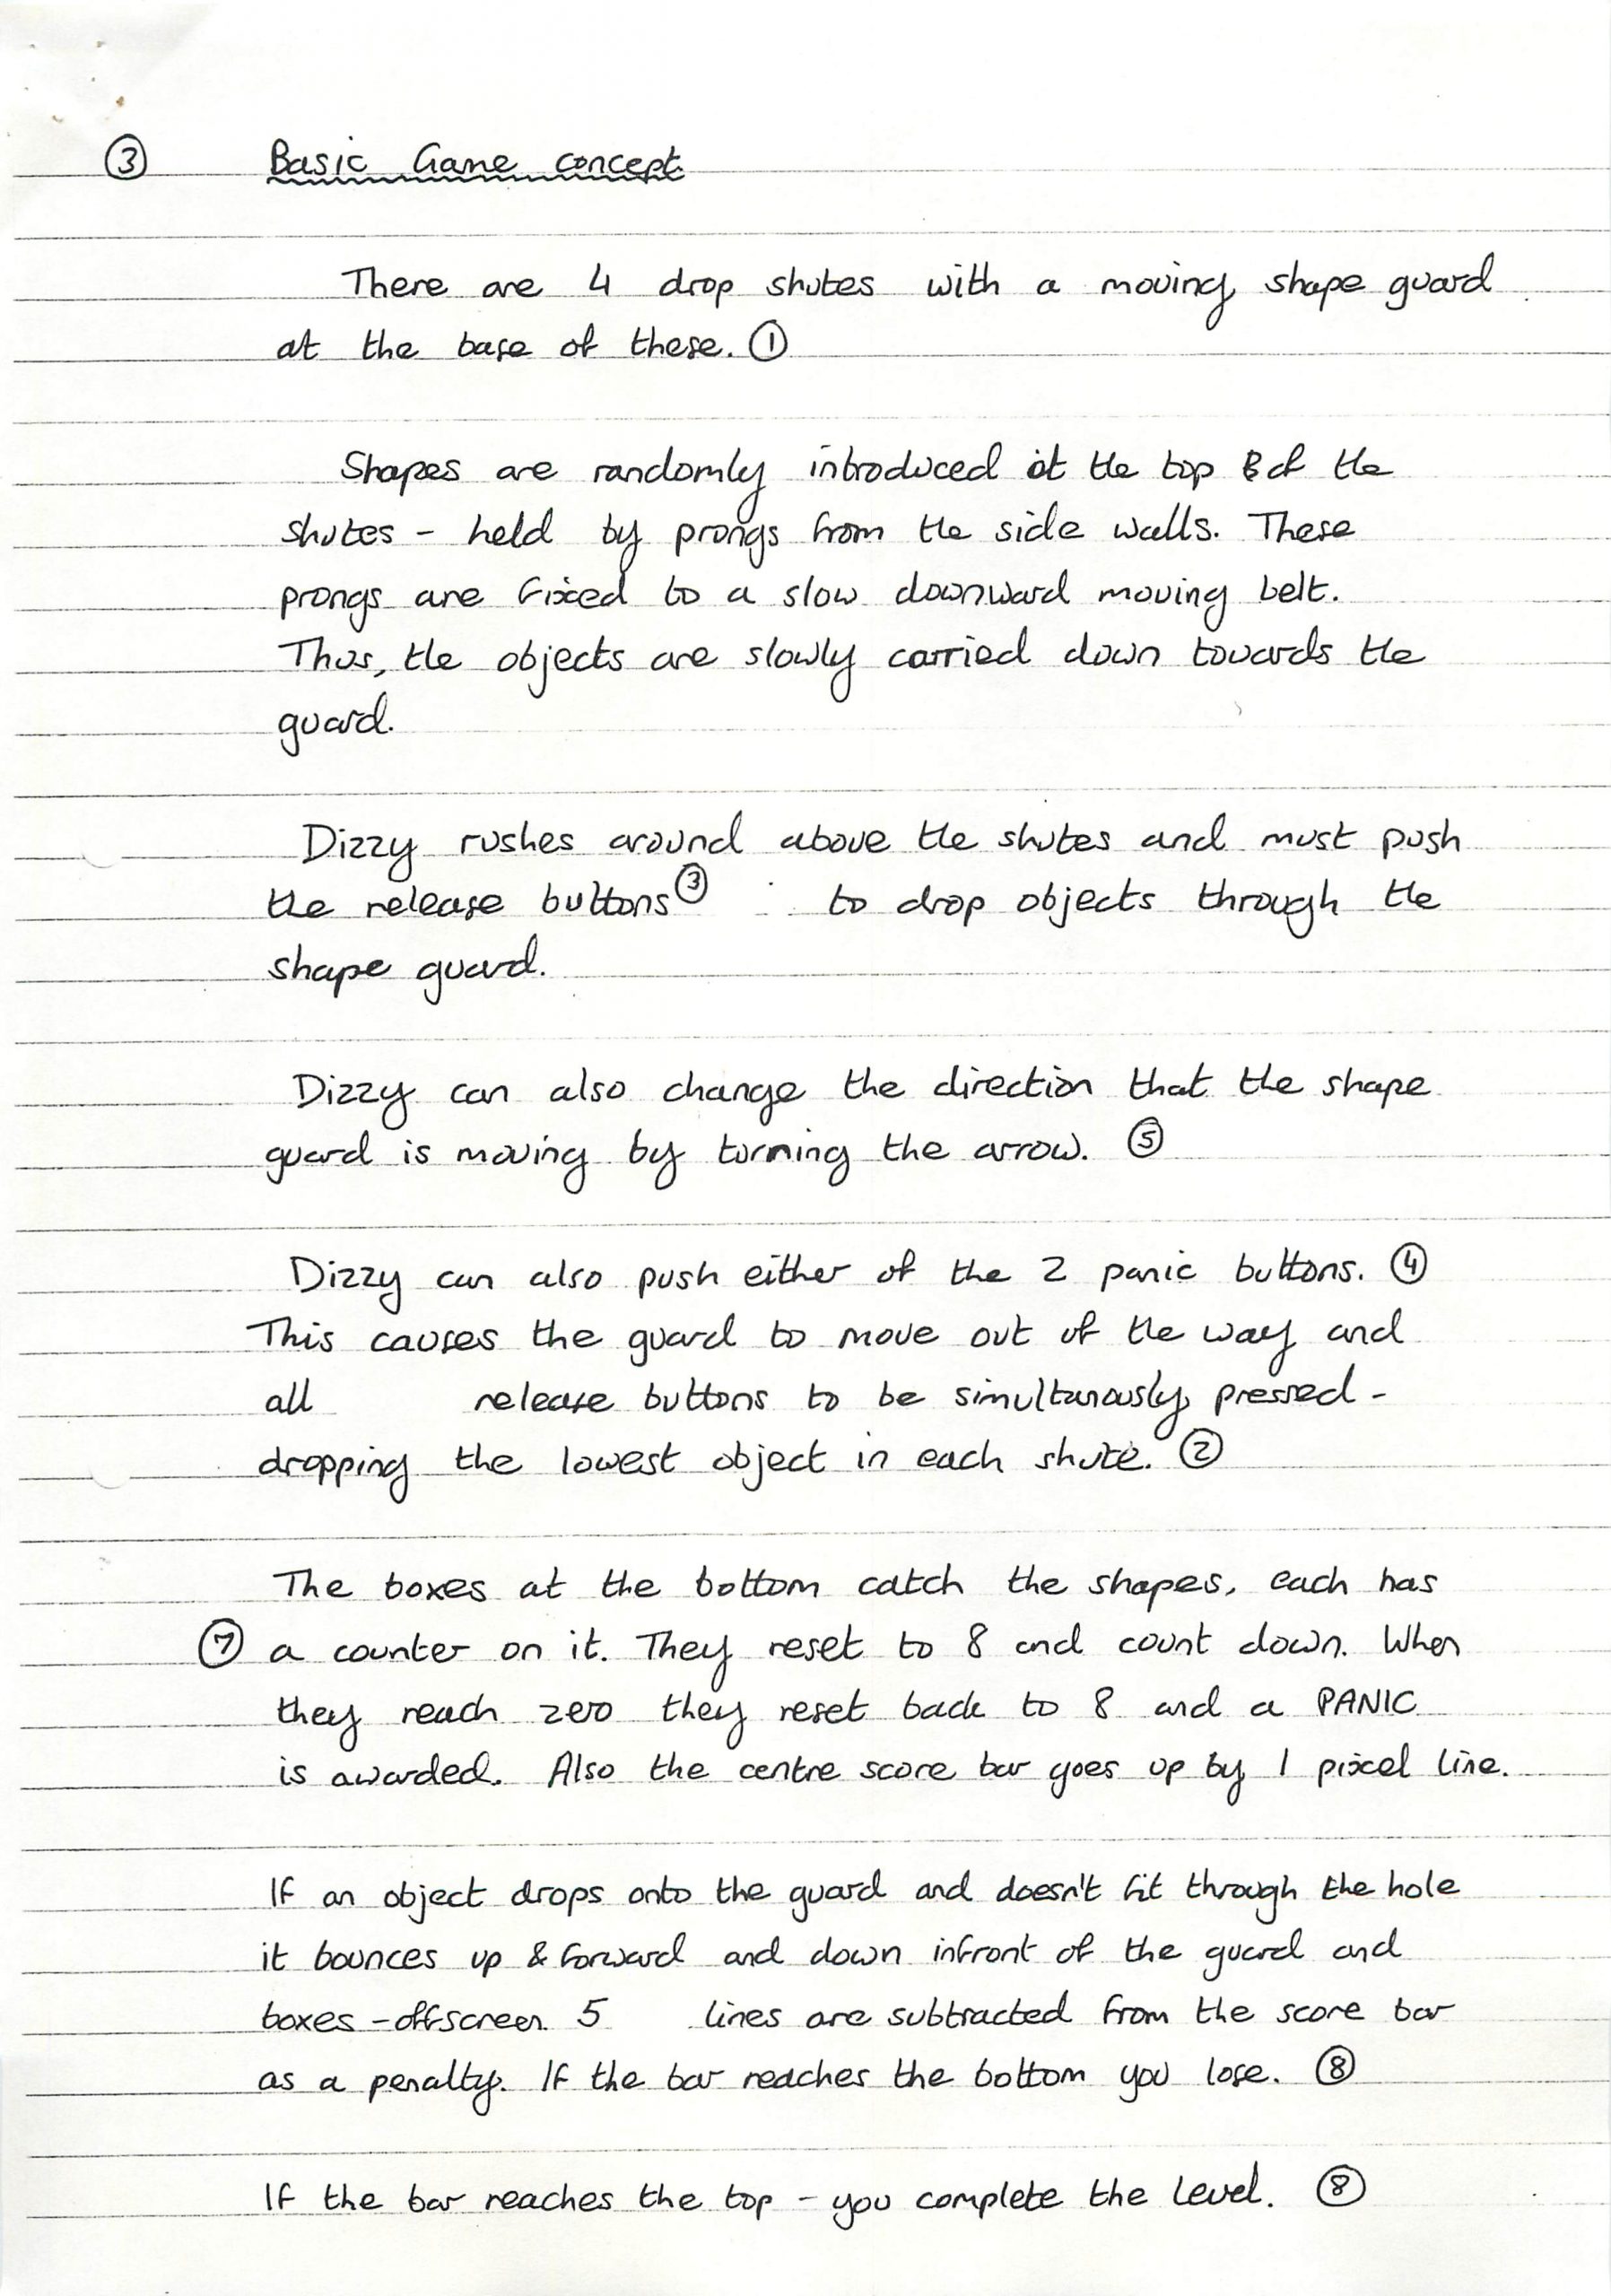 ③ Basic Game concept
There are 4 drop shutes with a moving shape guard
at the base of these. ①
Shapes are randomly introduced at the top of the
shutes - held by prongs from the side walls. These
prongs are fixed to a slow downward moving belt.
Thus, the objects are slowly carried down towards the
guard.
Dizzy rushes around above the shutes and must push
the release buttons ③ to drop objects through the
shape guard.
Dizzy can also change the direction that the shape
guard is moving by turning the arrow. ⑤
Dizzy can also push either of the 2 panic buttons. ④
This causes the guard to move out of the way and
all release buttons to be simultanously pressed -
dropping the lowest object in each shute. ②
The boxes at the bottom catch the shapes, each has
⑦ a counter on it. They reset to 8 and count down. When
they reach zero they reset back to 8 and a PANIC
is awarded. Also the centre score bar goes up by 1 pixel line.
If an object drops onto the guard and doesn't fit through the hole
it bounces up & forward and down infront of the guard and
boxes - offscreen. 5 lines are subtracted from the score bar
as a penalty. If the bar reaches the bottom you lose. ⑧
If the bar reaches the top - you complete the level. ⑧